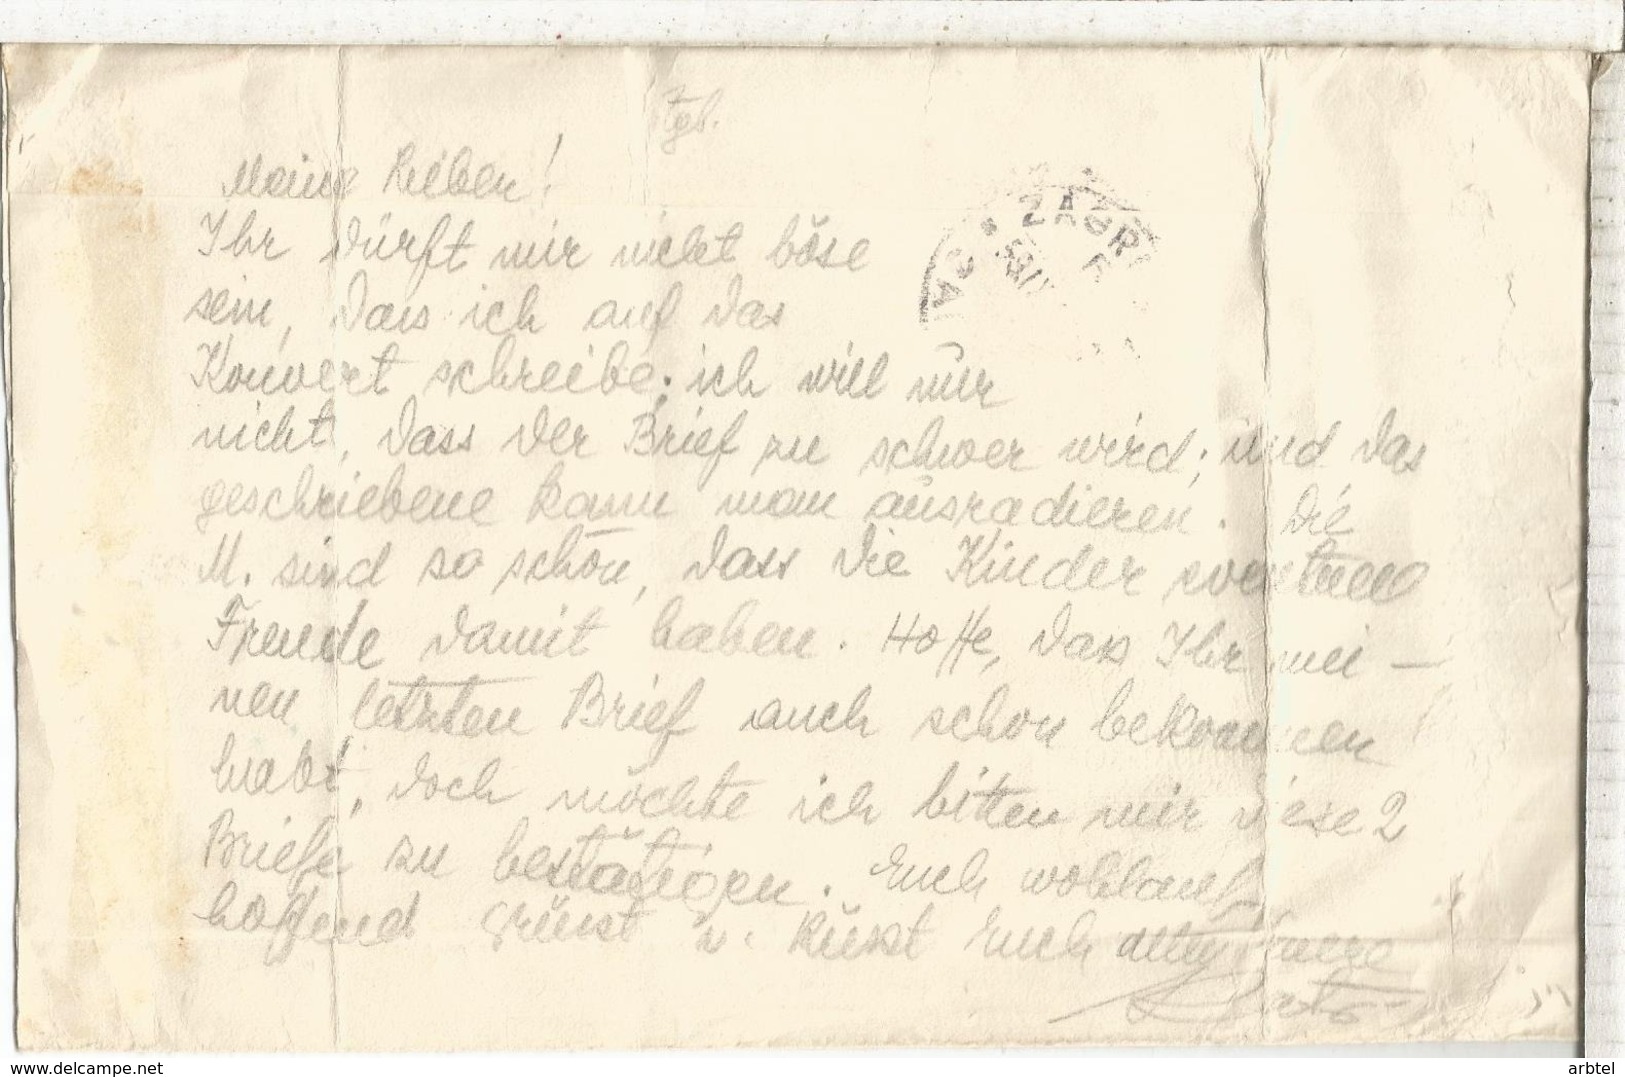 Tgb.
Meine Lieben!
Ihr dürft mir nicht böse
sein, dass ich auf das
Kouvert schreibe; ich will nur
nicht, dass der Brief zu schwer wird; und das
geschriebene kann man ausradieren. Die
M. sind so schön, dass die Kinder eventuell
Freude damit haben. Hoffe, dass Ihr mei-
nen letzten Brief auch schon bekommen
habt, doch möchte ich bitten mir diese 2
Briefe zu bestätigen. Euch wohlauf
hoffend grüsst u. küsst Euch alle, Eure
ZAGR
delcampe.net
arbtel